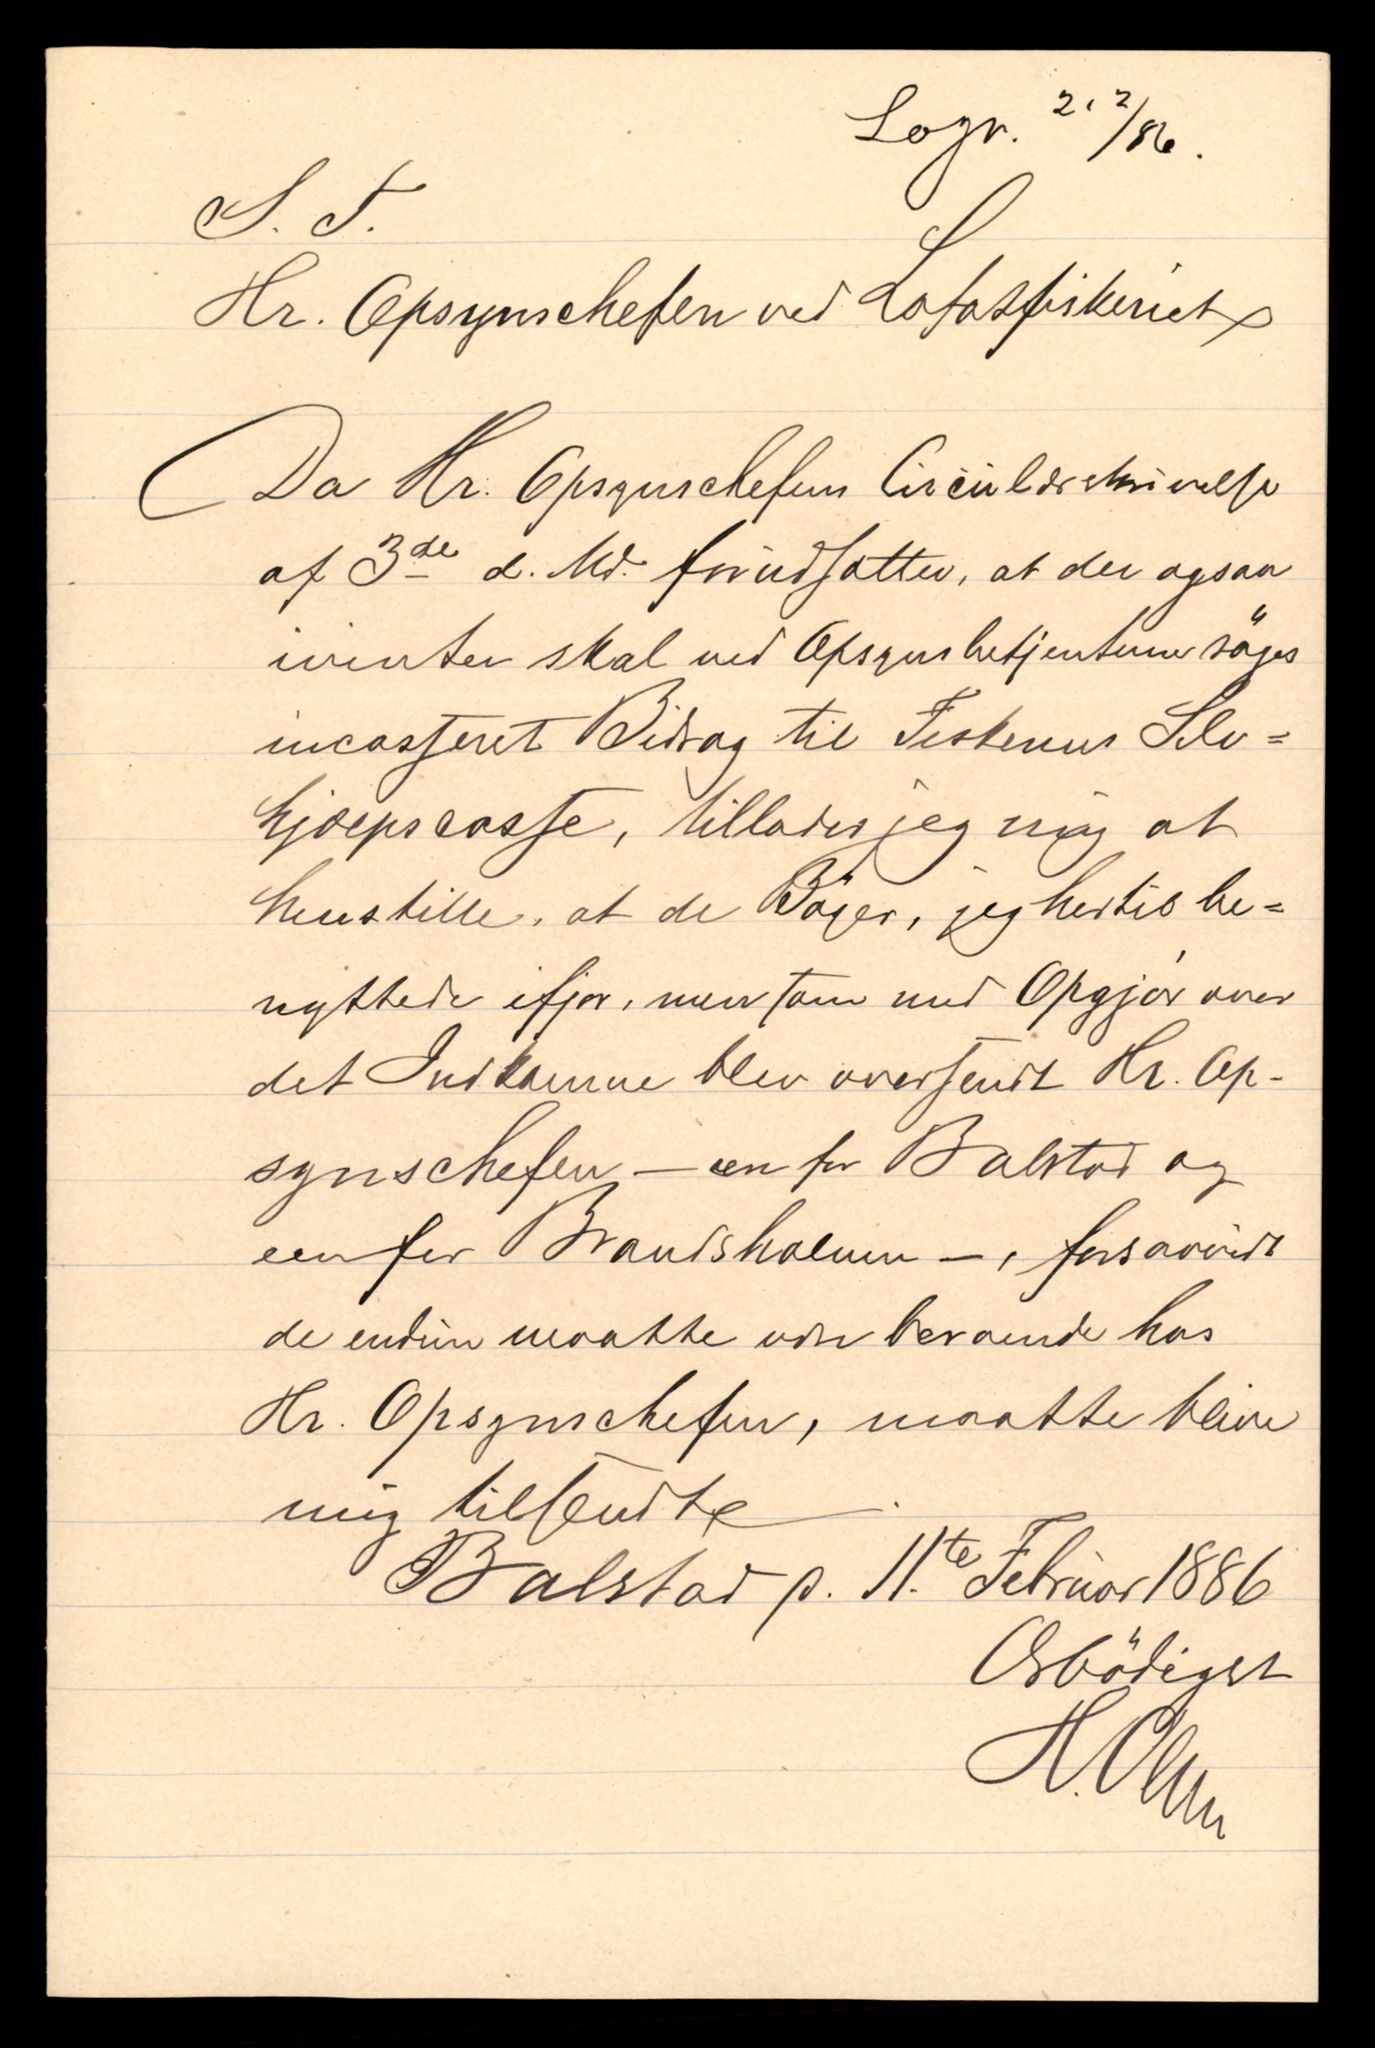 21 2/86.
S. T.
Hr. Opsynschefen ved Lofotfiskeriet
Da Hr. Opsynschefens Circulærskrivelse
af 3de d. Md. forudsatter, at der ogsaa
ivinter skal ved Opsynsbetjentene söges
incasseret Bidrag til Fiskernes Selv=
hjælpscasse, tillader jeg mig at
henstille, at de Böger, jeg hertil be=
nyttede ifjor, men som med Opgjör over
det Indkomne blev oversendt Hr. Op-
synschefen — een for Balstad og
een for Brandsholmen —, forsaavidt
de endnu maatte være beroende hos
Hr. Opsynschefen, maatte blive
mig tilsendt
Balstad p. 11.te Februar 1886
Ærbödigst
H. Olsen